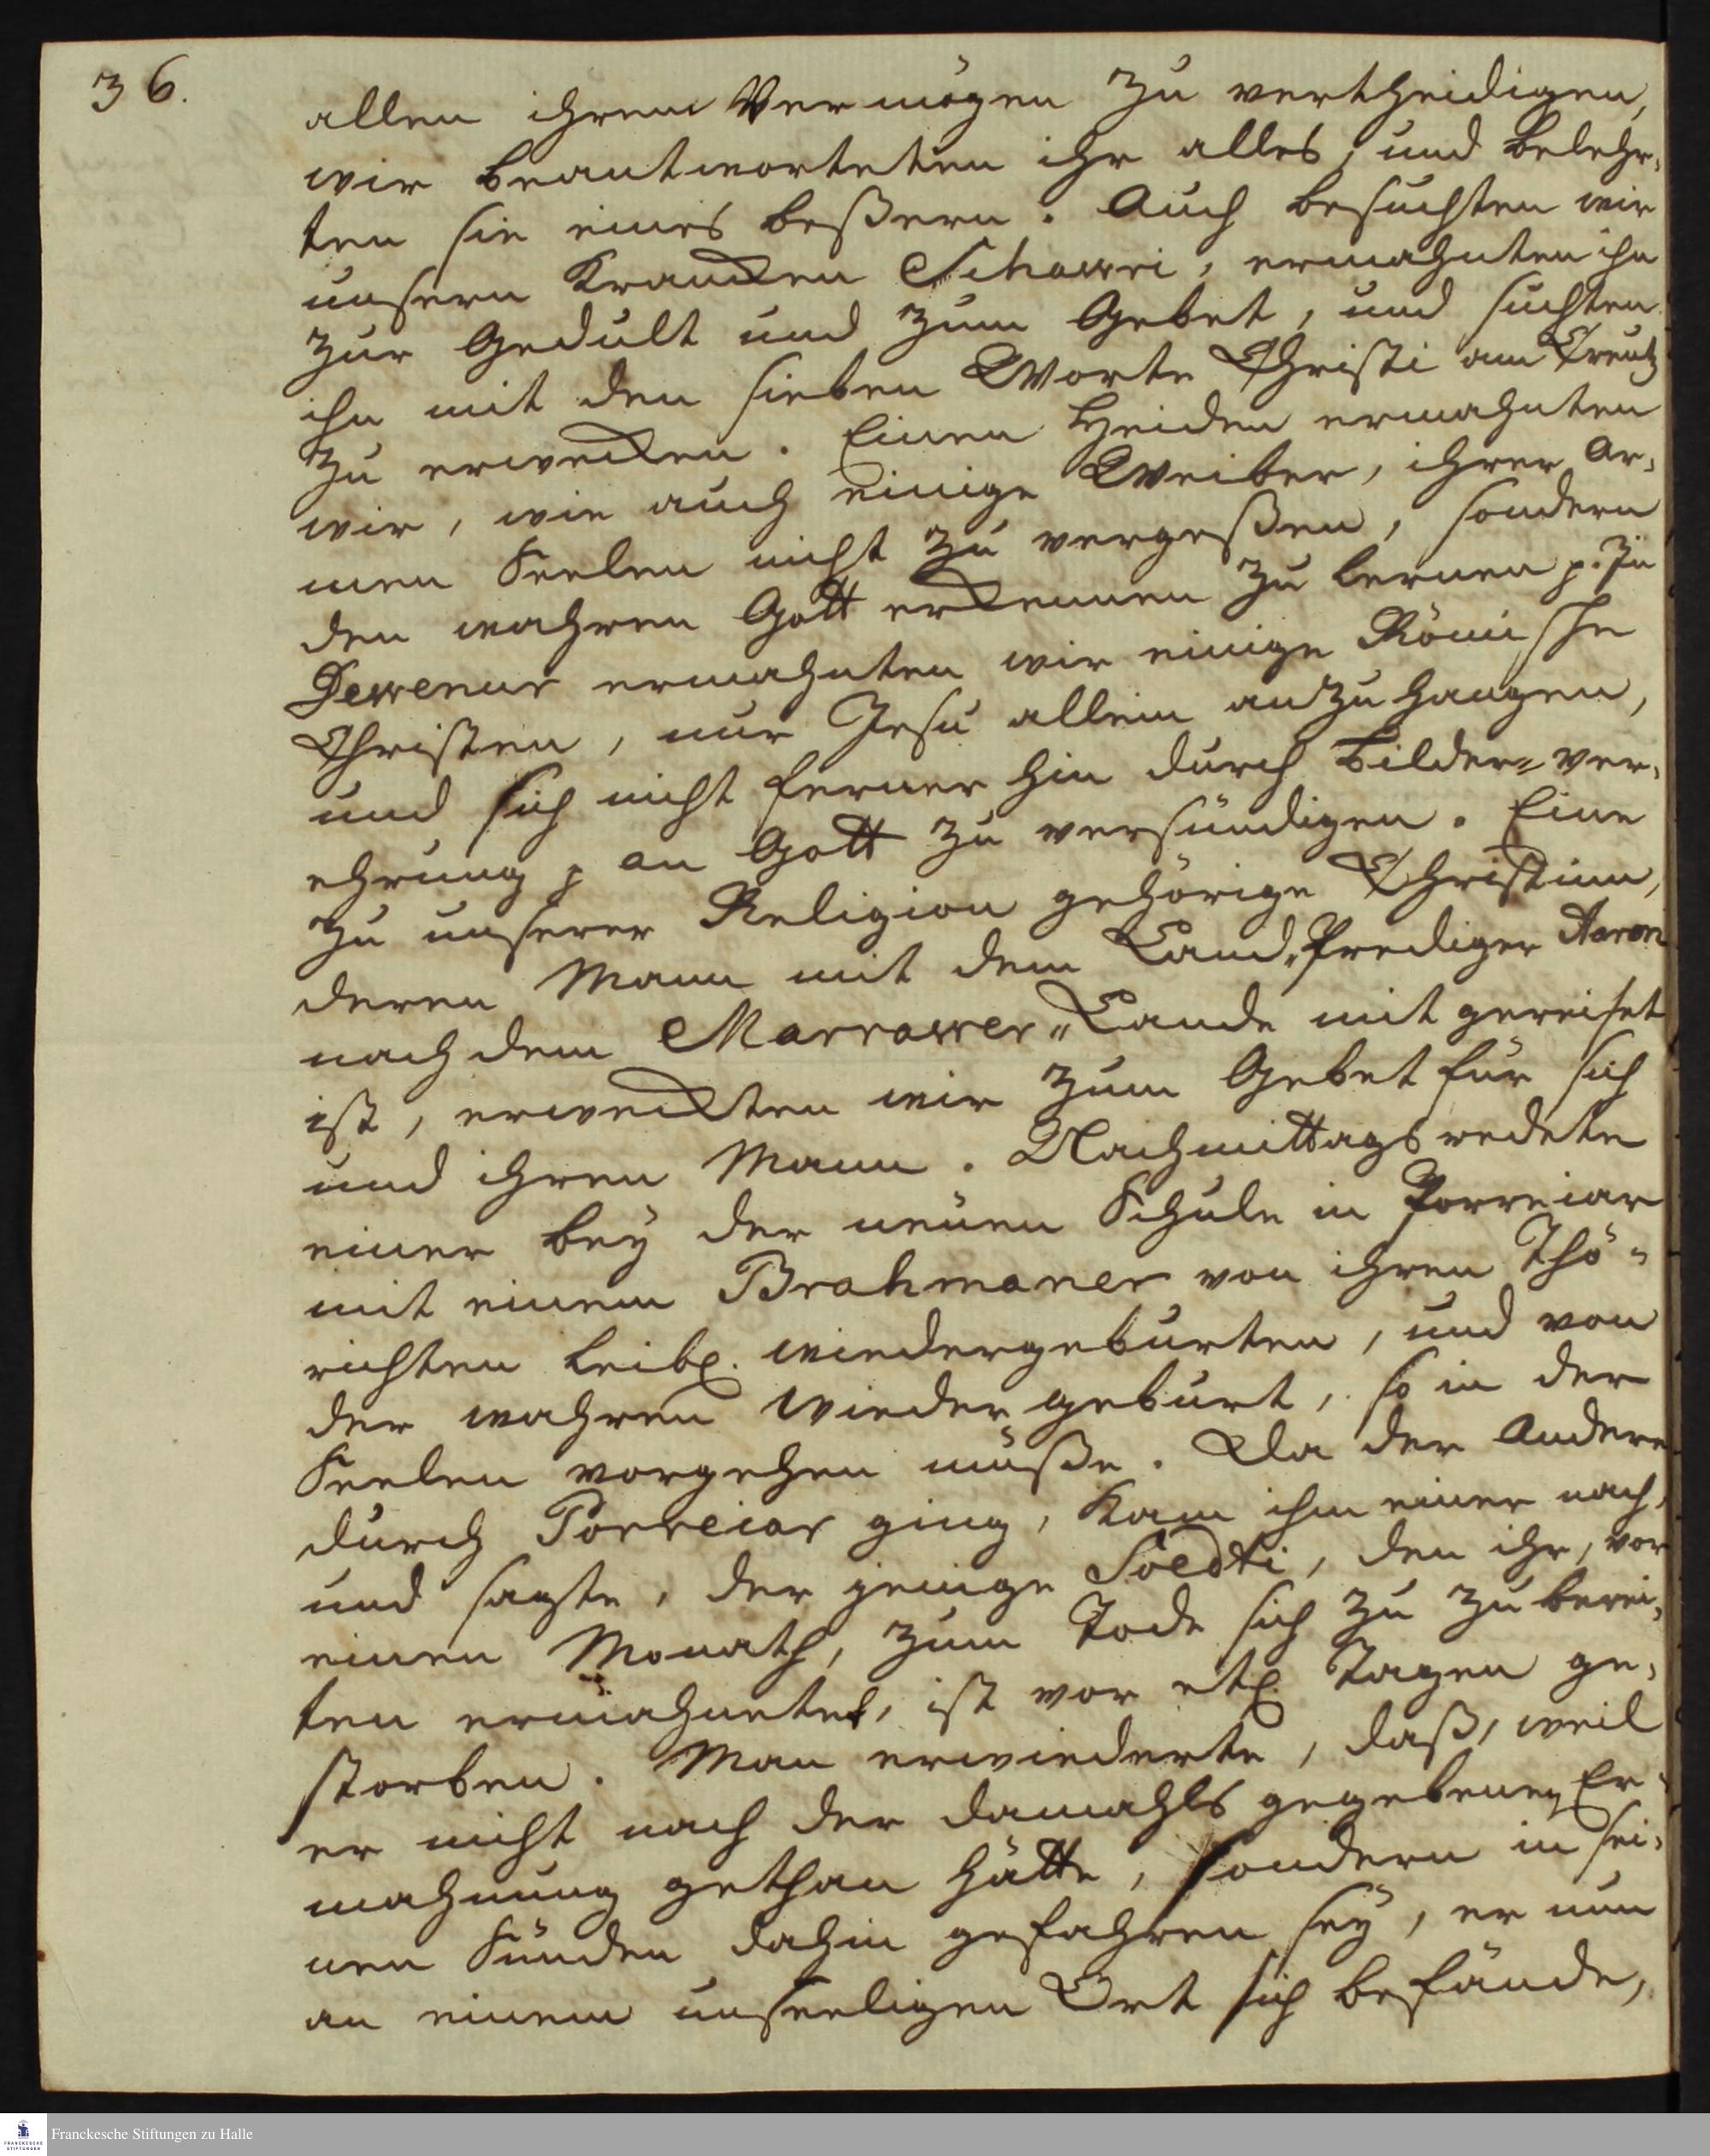 36.
allem ihrem Vermögen zu vertheidigen,
wir beantworteten ihr alles, und belehr-
ten sie eines beßern. Auch besuchten wir
unsern Krancken Schawri, ermahnten ihn
zur Gedult und zum Gebet, und suchten
ihn mit den sieben Worte Christi am Creutz
zu erwecken. Einen Heiden ermahnten
wir, wie auch einige Weiber, ihrer Ar-
men Seelen nicht zu vergeßen, sondern
den wahren Gott erkennen zu lernen p. In
Dewenur ermahnten wir einige Römische
Christen, nur Jesu allein anzuhangen,
und sich nicht ferner hin durch Bilder-ver-
ehrung p an Gott zu versündigen. Eine
zu unserer Religion gehörige Christinn,
deren Mann mit dem Land-Prediger Aaron
nach dem Marrawer-Lande mit gereiset
ist, erweckten wir zum Gebet für sich
und ihren Mann. Nachmittags redete
einer bey der neuen Schule in Porreiar
mit einem Brahmaner von ihren Thö-
richten leibl. wiedergeburten, und von
der wahren wiedergeburt, so in der
Seelen vorgehen müße. Da der Andere
durch Porreiar ging, kam ihm einer nach,
und sagte, der jenige Soedti, den ihr, vor
einen Monath, zum Tode sich zu zu berei-
ten ermahnetet, ist vor etl. Tagen ge-
storben. Man erwiederte, daß, weil
er nicht nach der damahls gegebenen Er-
mahnung gethan hätte, sondern in sei-
nen Sünden dahin gefahren sey, er nun
an einem unseeligen Ort sich befände,
Franckesche Stiftungen zu Halle
FRANCKESCHE
STIFTUNGEN